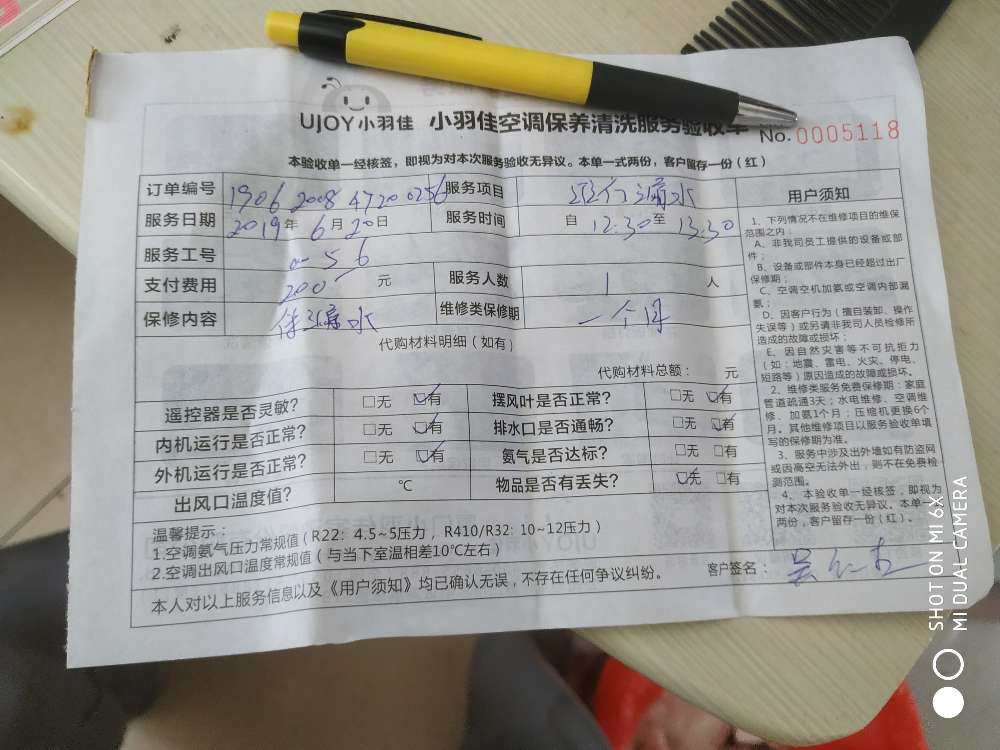 UJOY小羽佳 小羽佳空调保养清洗服务验收单
No.0005118
本验收单一经核签，即视为对本次服务验收无异议。本单一式两份，客户留存一份（红）
订单编号 1906 2008 4720 0256 服务项目 漏水
服务日期 2019年6月20日 服务时间 自 12:30至 13:30
服务工号 56
支付费用 200 元 服务人数 1 人
保修内容 漏水 维修类保修期 一个月
代购材料明细（如有）
代购材料总额： 元
遥控器是否灵敏？ □无 ☑有 摆风叶是否正常？ □无 ☑有
内机运行是否正常？ □无 ☑有 排水口是否通畅？ □无 ☑有
外机运行是否正常？ □无 ☑有 氨气是否达标？ □无 □有
出风口温度值？ ℃ 物品是否有丢失？ ☑无 □有
温馨提示：
1.空调氨气压力常规值（R22: 4.5~5压力，R410/R32: 10~12压力）
2.空调出风口温度常规值（与当下室温相差10℃左右）
本人对以上服务信息以及《用户须知》均已确认无误，不存在任何争议纠纷。
客户签名：
用户须知
1、下列情况不在维修项目的维保
范围之内：
A、非我司员工提供的设备或部
件；
B、设备或部件本身已经超过出厂
保修期；
C、空调空机加氨或空调内部漏
氨；
D、因客户行为（擅自装卸、操作
失误等）或另请非我司人员检修所
造成的故障或损坏；
E、因自然灾害等不可抗拒力
（如：地震、雷电、火灾、停电、
短路等）原因造成的故障或损坏。
2、维修类服务免费保修期：家庭
管道疏通3天；水电维修、空调维
修、加氨1个月；压缩机更换6个
月。其他维修项目以服务验收单填
写的保修期为准。
3、服务中涉及出外墙如有防盗网
或因高空无法外出，则不在免费检
测范围。
4、本验收单一经核签，即视为
对本次服务验收无异议。本单一式
两份，客户留存一份（红）。
SHOT ON MI 6X
MI DUAL CAMERA